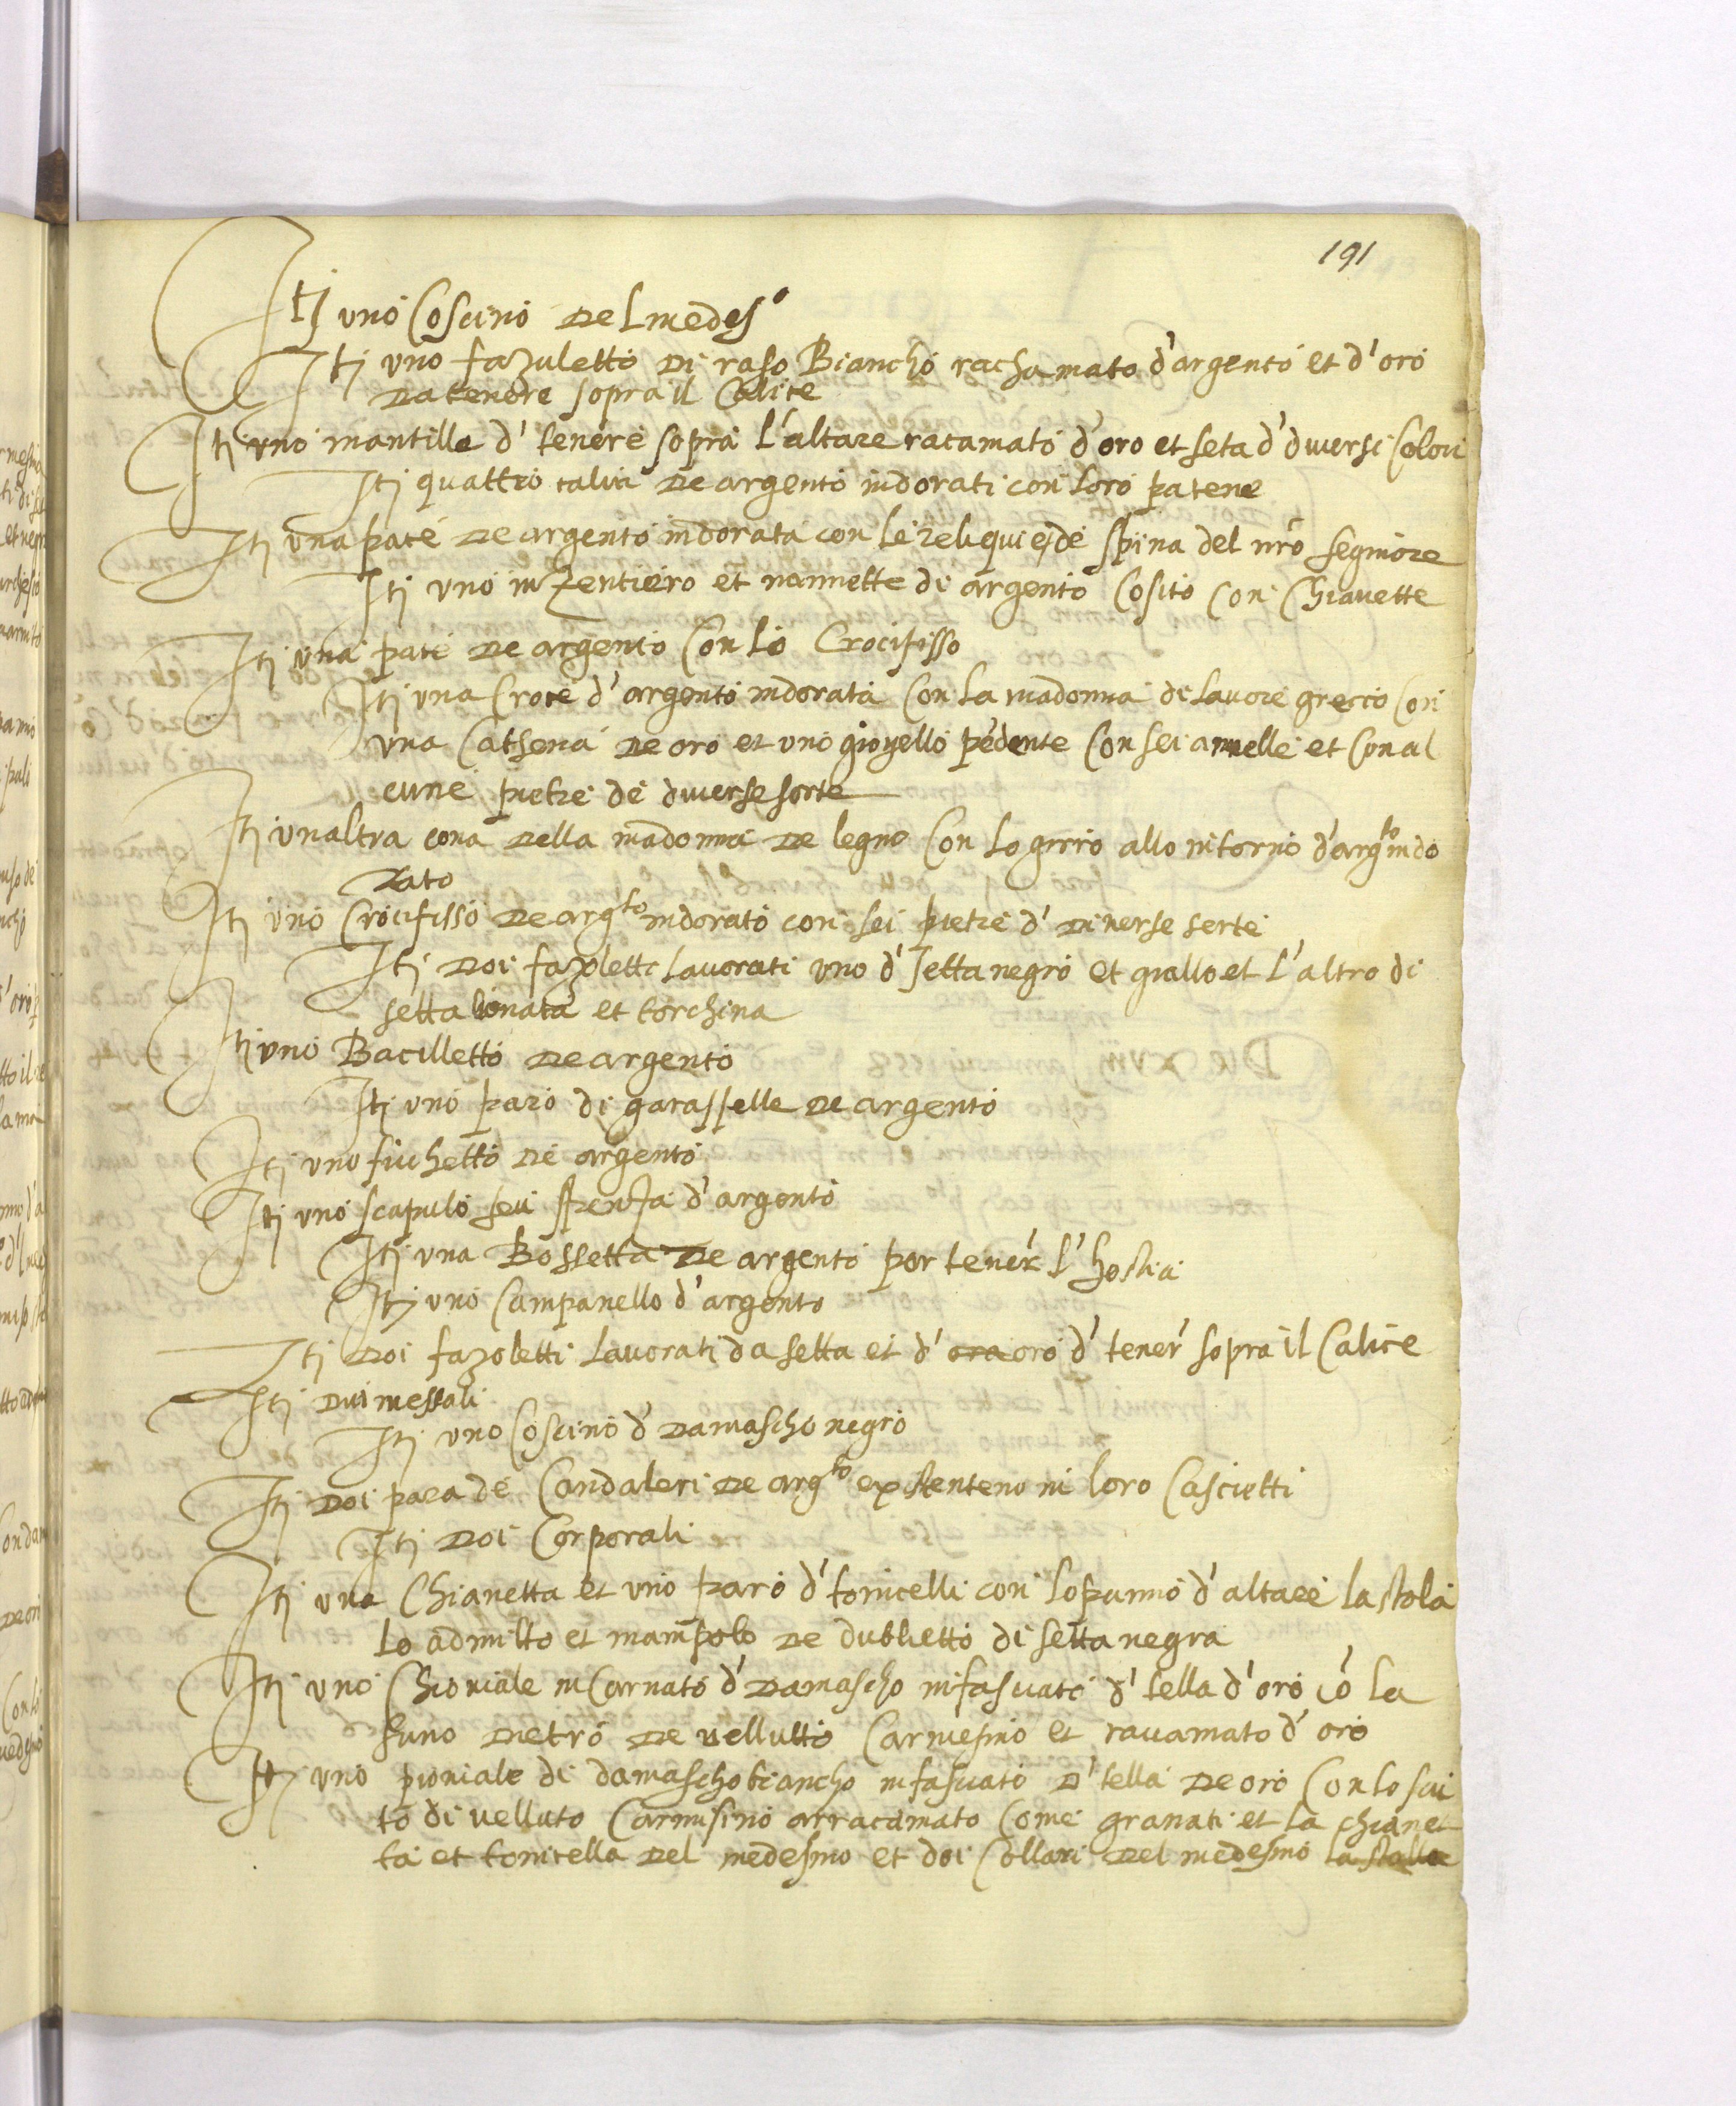 191
Itj uno Coscino del medes.º
Itj uno fazuletto di raso Biancho rachamato d'argento et d'oro
da tenere sopra il Calice
Itj uno mantille d' tenere sopra l'altare racamato d'oro et seta d' diversi Colori
Itj quattro calici de argento indorati con loro patene
Itj una pace de argento indorata con le reliquie de spina del nrō segniore
Itj uno inzentiero et navinette di argento Cosito con Chiavette
Itj una pace de argento Con lo Crocifisso
Itj una Croce d'argento indorata Con la madonna di lavore greco Con
una Cathena de oro et uno gioyello pēdente Con sei annelle et Con al
cune pietre de diverse sorte
Itj unaltra cona della madonna de legno Con lo giro allo intorno d'arg.to indo
rato
Itj uno Crocifisso de arg.to indorato con sei pietre d' diverse serte
Itj doi fazoletti lavorati uno d' setta negro et giallo et l'altro di
setta lionata et torchina
Itj uno Bacilletto de argento
Itj uno paro di garasselle de argento
Itj uno fischetto de argento
Itj uno scapulo seu d'argento
Itj una Bossetta de argento per tener l'hostia
Itj uno Campanello d'argento
Itj doi fazoletti lavorati da setta et d' ora oro d' tener' sopra il Calice
Itj dui messali
Itj uno Coscino d' damascho negro
Itj doi para de Candaleri de arg.to existenteno in loro Cascietti
Itj doi Corporali
Itj una Chianetta et uno paro d' tonicelli con lo panno d'altare la stola
lo admitto et manipolo de dubletto di setta negra
Itj uno Chioviale inCarnato d' damascho infasciato d' tella d'oro cō la
suno dietro de vellutto Carmesino et racamato d' oro
Itj uno pioviale di damascho biancho infasciato d' tella de oro Con lo scu
to di velluto Carmisino arracamato Come granati et la chianet
ta et tonicella del medesmo et doi Collari del medesmo la stolla